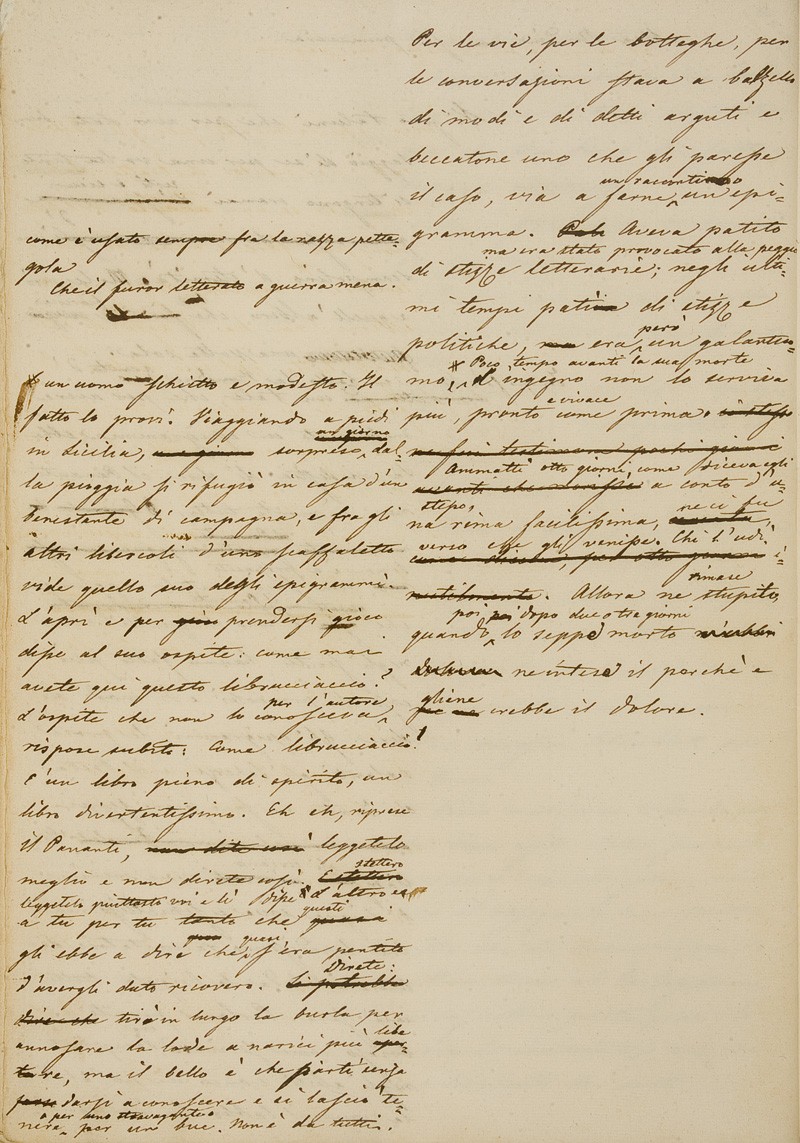 come è usato sempre fra la razza pette-
gola
Che il furor letterato a guerra mena.
un uomo schietto e modesto. Il
fatto lo provi. Viaggiando a piedi
un giorno
in Sicilia, sorpreso dal-
la pioggia si rifugiò in casa d'un
benestante di campagna, e fra gli
altri libercoli d'uno scaffaletto
vide quello suo degli epigrammi.
L'aprì e per prendersi gioco
disse al suo ospite: come mai
avete qui questo libricciaccio?
per l'autore
L'ospite che non lo conosceva,
rispose subito: Come libricciaccio!
È un libro pieno di spirito, un
libro divertentissimo. Eh eh, riprese
il Pananti, non dite così leggetelo
stettero
meglio e non direte così. E stettero
leggetelo piuttosto voi e lì disse l'altro e
questi
a tu per tu tanto che quasi
quasi
gli ebbe a dire che s'era pentito
Direte:
d'avergli dato ricovero. Si potrebbe
dire che tirò in lungo la burla per
libe
annosare la lode a narici più aper-
te re, ma il bello è che partì senza
farsi darsi a conoscere e si lasciò te-
o per uno stravagante o
nere per un bue. Non è da tutti.
Per le vie, per le botteghe, per
le conversazioni stava a balzello
di modi e di detti arguti e
beccatone uno che gli paresse
un raccontino o
il caso, via a farne un epi-
gramma. Aveva patito
ma era stato provocato alla peggio
di stizze letterarie; negli ulti-
mi tempi patìa di stizze
però
politiche, ma era un galantuo-
Poco tempo avanti la sua morte
mo. L'ingegno non lo serviva
e vivace
più, pronto come prima. io stesso
ne fui testimone pochi giorni
Ammattì otto giorni, come diceva egli
avanti che morisse a conto d'u-
stesso,
na rima facilissima, ne ci fu
verso che gli venisse. Chi l'udì,
rimase
. Allora ne stupito,
poi poi dopo due o tre giorni
quando lo seppe morto
ne intese il perchè e
gliene
crebbe il dolore.